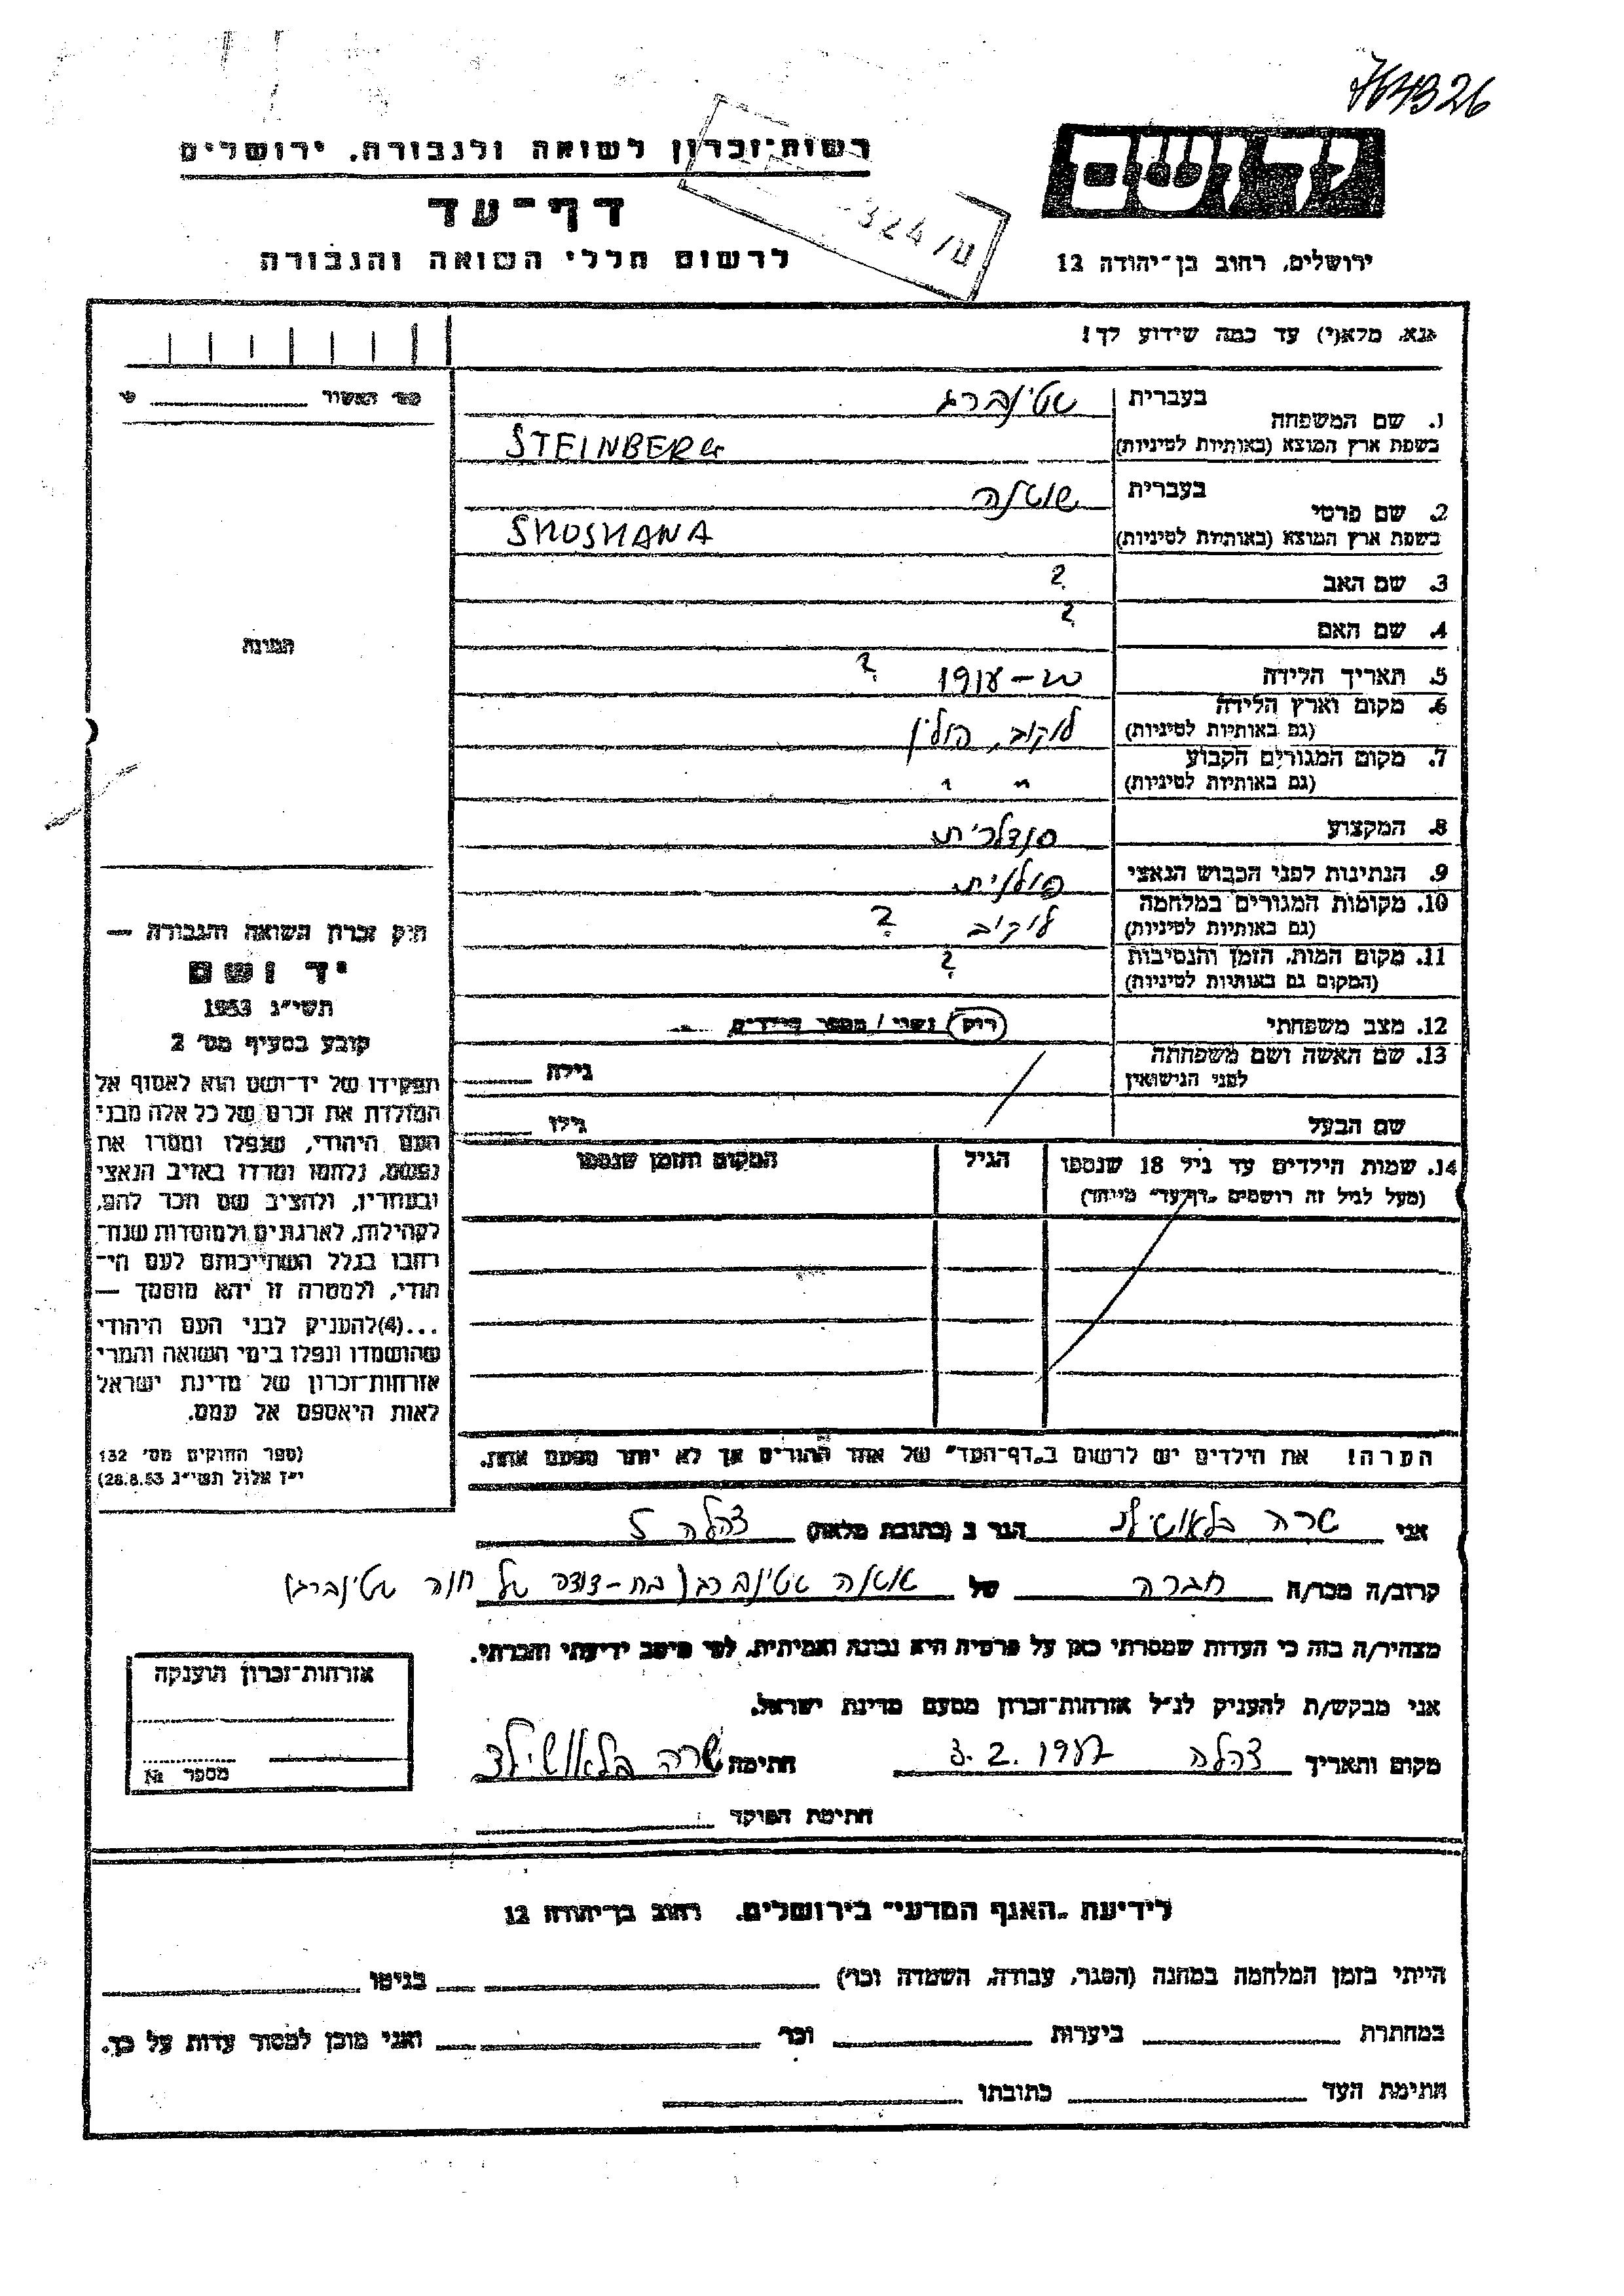 רשות־זכרון לשואה ולגבורה, ירושלים
דף־עד
לרשום חללי השואה והגבורה
יד ושם
ירושלים, רחוב בן־יהודה 12
ע/324-
אנא, מלא(י) עד כמה שידוע לך!
1. שם המשפחה בעברית שטינברג
בשפת ארץ המוצא (באותיות לטיניות) STEINBERG
2. שם פרטי בעברית שושנה
בשפת ארץ המוצא (באותיות לטיניות) SHOSHANA
3. שם האב ?
4. שם האם ?
5. תאריך הלידה ?
6. מקום וארץ הלידה לוקוב, פולין
(גם באותיות לטיניות)
7. מקום המגורים הקבוע " "
(גם באותיות לטיניות)
8. המקצוע סנדלרית
9. הנתינות לפני הכבוש הנאצי פולנית
10. מקומות המגורים במלחמה לוקוב ?
(גם באותיות לטיניות)
11. מקום המות, הזמן והנסיבות ?
(המקום גם באותיות לטיניות)
12. מצב משפחתי רוק / נשוי / מספר הילדים
13. שם האשה ושם משפחתה גילה
לפני הנישואין
שם הבעל גילו
14. שמות הילדים עד גיל 18 שנספו הגיל המקום והזמן שנספו
(מעל לגיל זה רושמים "דף־עד" מיוחד)
הערה! את הילדים יש לרשום ב"דף־העד" של אחד ההורים אך לא יותר מפעם אחת.
מס' האשור
התמונה
חוק זכרון השואה והגבורה —
יד ושם
תשי"ג 1953
קובע בסעיף מס' 2
תפקידו של יד־ושם הוא לאסוף אל
המולדת את זכרם של כל אלה מבני
העם היהודי, שנפלו ומסרו את
נפשם, נלחמו ומרדו באויב הנאצי
ובעוזריו, ולהציב שם וזכר להם,
לקהילות, לארגונים ולמוסדות שנח־
רבו בגלל השתייכותם לעם הי־
הודי, ולמטרה זו יהא מוסמך —
...(4)להעניק לבני העם היהודי
שהושמדו ונפלו בימי השואה והמרי
אזרחות־זכרון של מדינת ישראל
לאות היאספם אל עמם.
(ספר החוקים מס' 132
י"ז אלול תשי"ג 28.8.53)
אני שרה בלאושילד הגר ב (כתובת מלאה) צהלה 5
קרוב/ה מכר/ה חברה של שושנה שטינברג (בת-דודה של חנה שטינברג)
מצהיר/ה בזה כי העדות שמסרתי כאן על פרטיה היא נכונה ואמיתית, לפי מיטב ידיעתי והכרתי.
אני מבקש/ת להעניק לנ"ל אזרחות־זכרון מטעם מדינת ישראל.
מקום ותאריך צהלה 3.2.1957 חתימה שרה בלאושילד
חתימת הפוקד
אזרחות־זכרון הוענקה
מספר №
לידיעת "האגף המדעי" בירושלים, רחוב בן־יהודה 12
הייתי בזמן המלחמה במחנה (הסגר, עבודה, השמדה וכו') בגיטו
במחתרת ביערות וכו' ואני מוכן למסור עדות על כך.
חתימת העד כתובתו